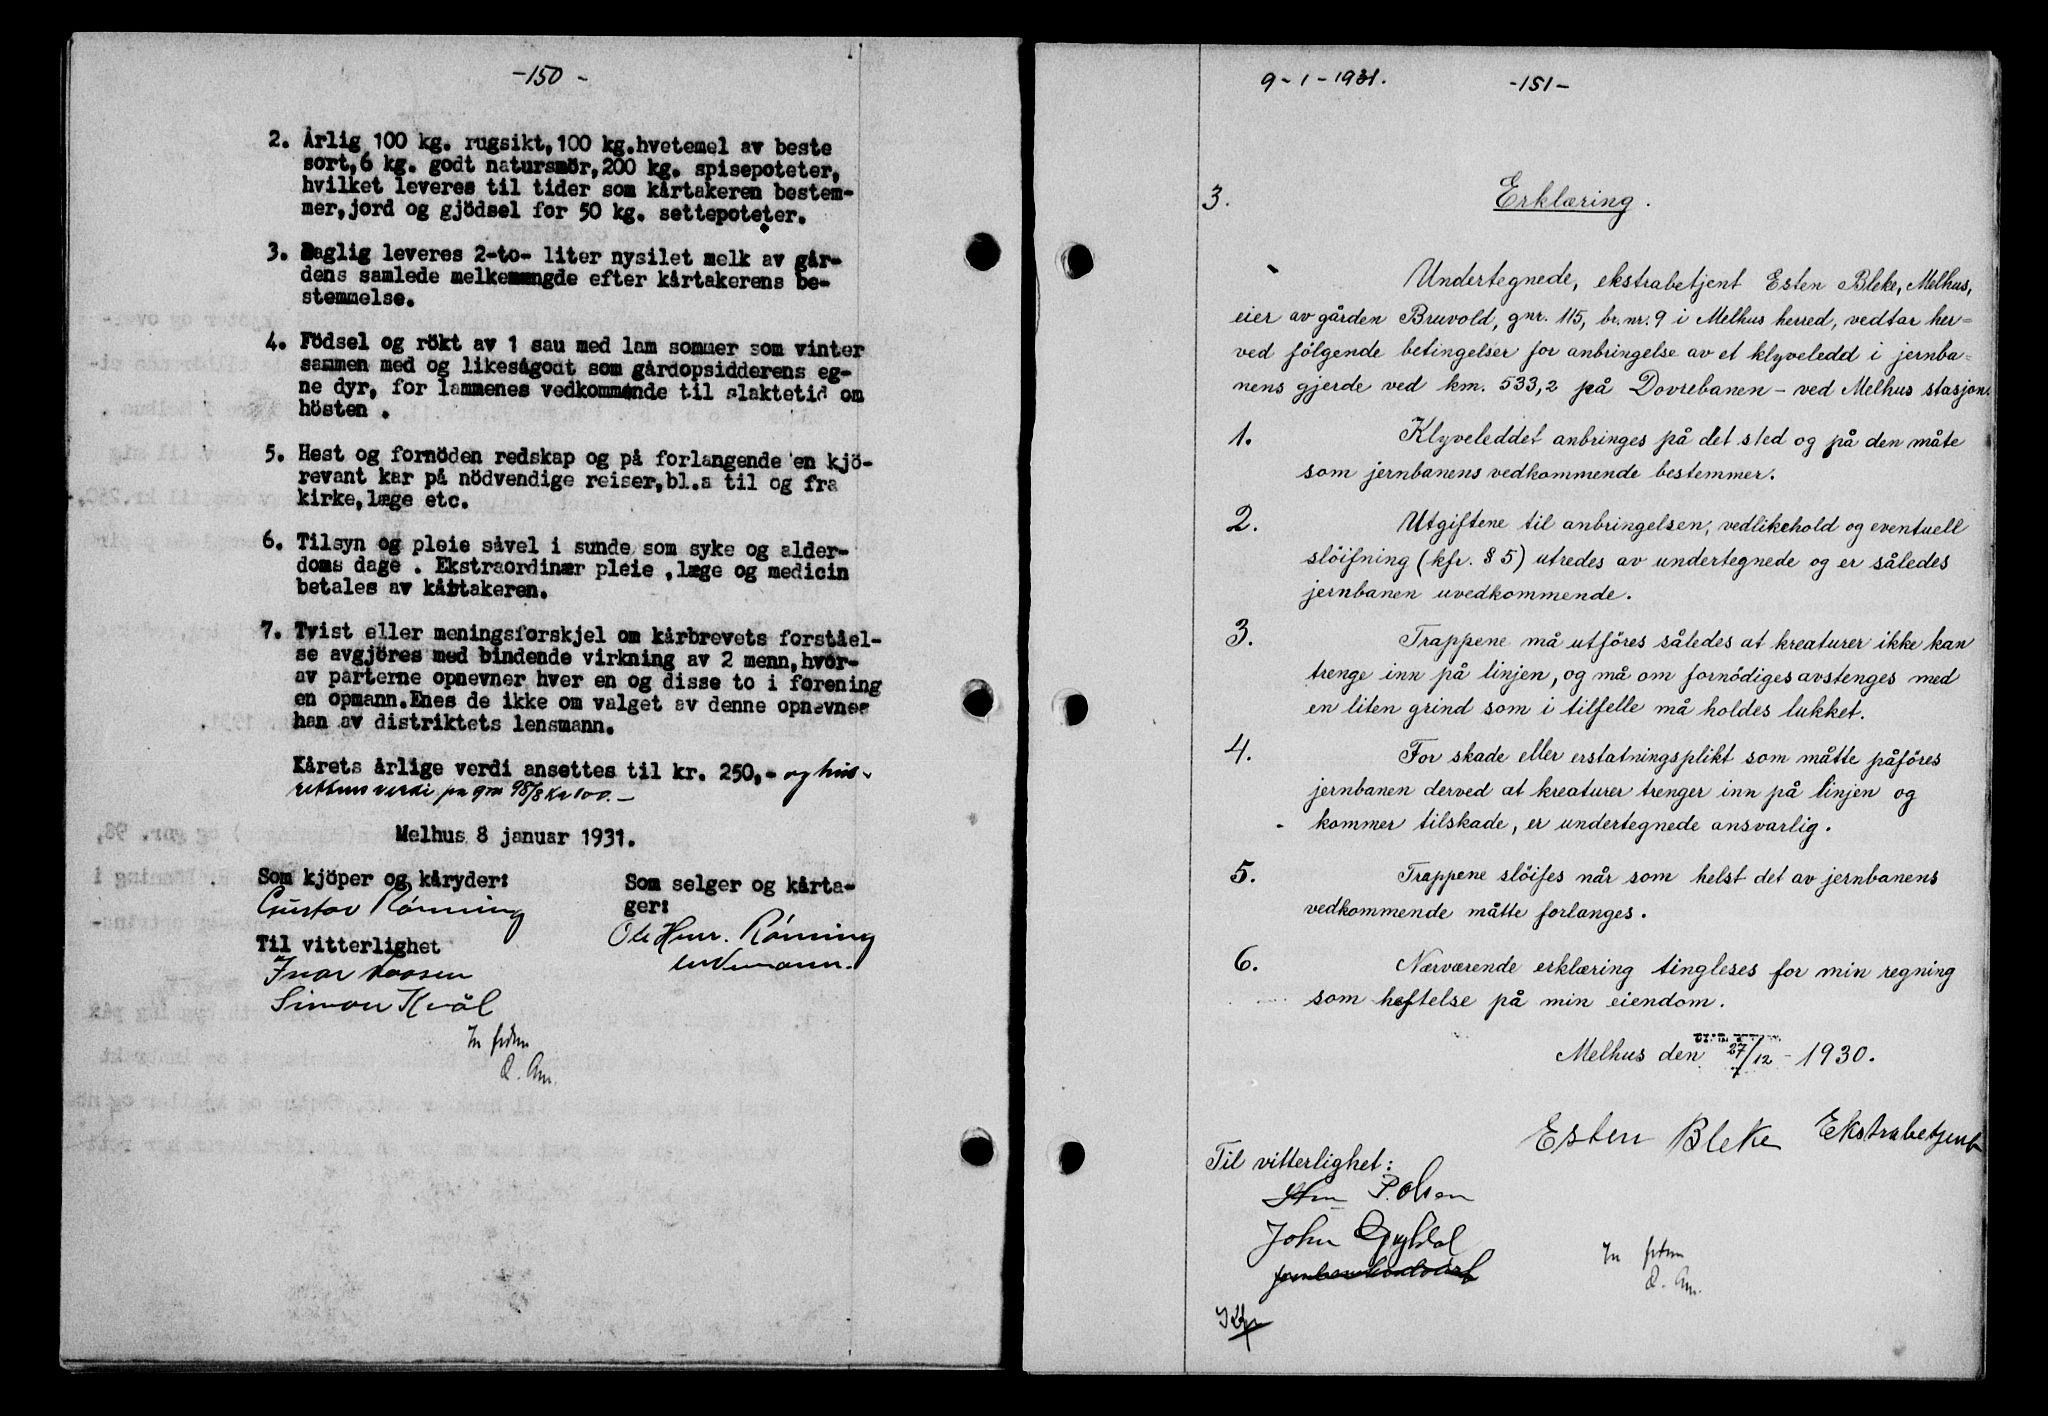 -150-
2. Årlig 100 kg. rugsikt, 100 kg. hvetemel av beste
sort, 6 kg. godt natursmör, 200 kg. spisepoteter,
hvilket leveres til tider som kårtakeren bestem-
mer, jord og gjödsel for 50 kg. settepoteter.
3. Daglig leveres 2-to- liter nysilet melk av går-
dens samlede melkemengde efter kårtakerens be-
stemmelse.
4. Födsel og rökt av 1 sau med lam sommer som vinter
sammen med og likesågodt som gårdopsidderens eg-
ne dyr, for lammenes vedkommende til slaktetid om
hösten .
5. Hest og fornöden redskap og på forlangende en kjö-
revant kar på nödvendige reiser, bl.a til og fra
kirke, læge etc.
6. Tilsyn og pleie såvel i sunde som syke og alder-
doms dage . Ekstraordinær pleie , læge og medicin
betales av kårtakeren.
7. Tvist eller meningsforskjel om kårbrevets forståel-
se avgjöres med bindende virkning av 2 menn, hvor-
av parterne opnevner hver en og disse to i forening
en opmann. Enes de ikke om valget av denne opnevnes
han av distriktets lensmann.
Kårets årlige verdi ansettes til kr. 250,- og hus-
rettens verdi på gnr 98/8 Kr 100.-
Melhus 8 januar 1931.
Som kjöper og kåryder:
Gustav Rønning
Som selger og kårta-
ger:
Ole Henr. Rønning
enkemann.
Til vitterlighet
Ivar
Simon Kvål
In fidem
O. Am.
9-1-1931.
-151-
3. Erklæring.
Undertegnede, ekstrabetjent Esten Bleke, Melhus,
eier av gården Bruvold, gnr. 115, br.nr. 9 i Melhus herred, vedtar her=
ved fölgende betingelser for anbringelse av et klyveledd i jernba=
nens gjerde ved km. 533,2 på Dovrebanen - ved Melhus stasjon.
1. Klyveleddet anbringes på det sted og på den måte
som jernbanens vedkommende bestemmer.
2. Utgiftene til anbringelsen, vedlikehold og eventuell
slöifning (kfr. § 5) utredes av undertegnede og er således
jernbanen uvedkommende.
3. Trappene må utföres således at kreaturer ikke kan
trenge inn på linjen, og må om fornödiges avstenges med
en liten grind som i tilfelle må holdes lukket.
4. For skade eller erstatningsplikt som måtte påföres
jernbanen derved at kreaturer trenger inn på linjen og
kommer tilskade, er undertegnede ansvarlig.
5. Trappene slöifes når som helst det av jernbanens
vedkommende måtte forlanges.
6. Nærværende erklæring tingleses for min regning
som heftelse på min eiendom.
Melhus den 27/12 - 1930.
Esten Bleke Ekstrabetjent
Til vitterlighet:
P. Olsen
John Gyldal
In fidem
O. Am.